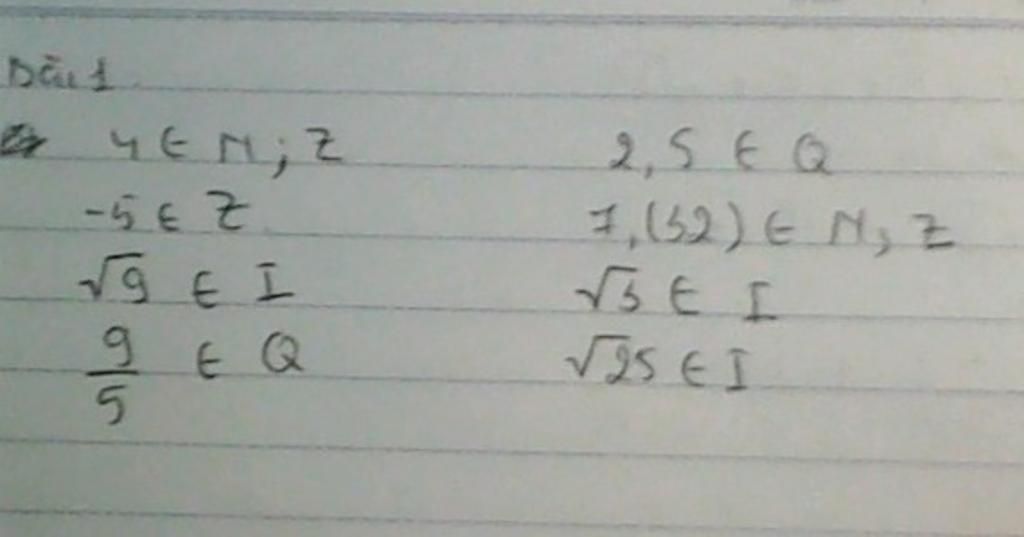 Bài 1
4 ∈ N; Z 2,5 ∈ Q
-5 ∈ Z 7,(32) ∈ N; Z
√9 ∈ I √3 ∈ I
9/5 ∈ Q √25 ∈ I